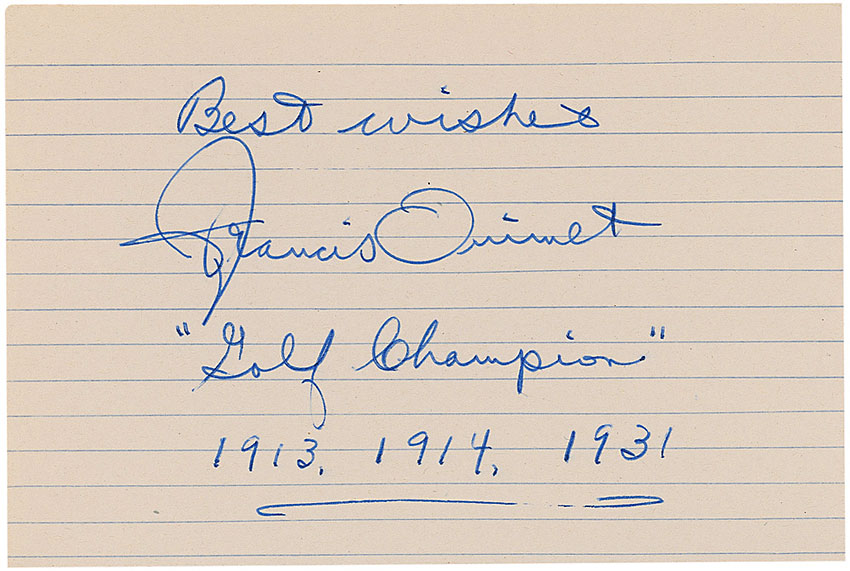 Best wishes
Francis Ouimet
"Golf Champion"
1913, 1914, 1931